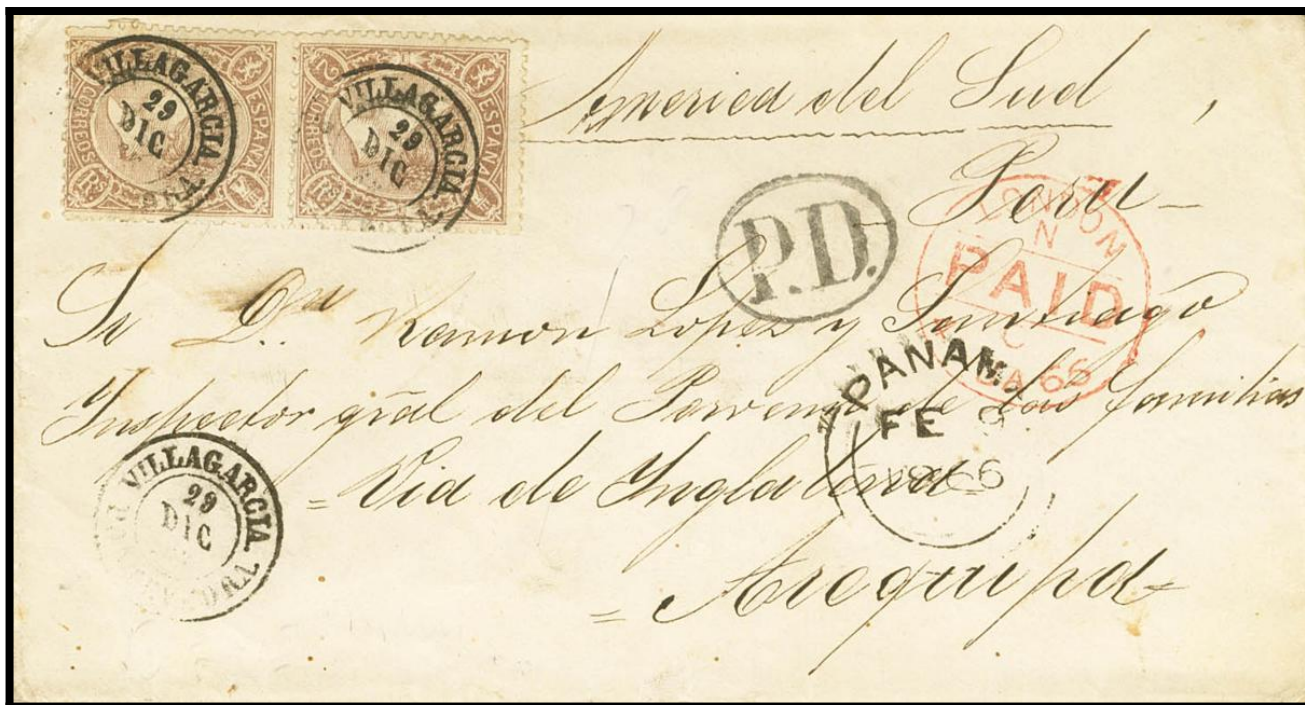 VILLAGARCIA
29
DIC
CORREOS
ESPANA
RS
VILLAGARCIA
29
DIC
CORREOS
ESPANA
2
America del Sud,
Peru-
P.D.
LONDON
N
PAID
C
JA 66
Sr Dn Ramon Lopez y Santiago
PANAMA
FE
1866
Inspector gral del Porvenir de las familias
VILLAGARCIA
29
DIC
= Via de Inglaterra =
= Arequipa =